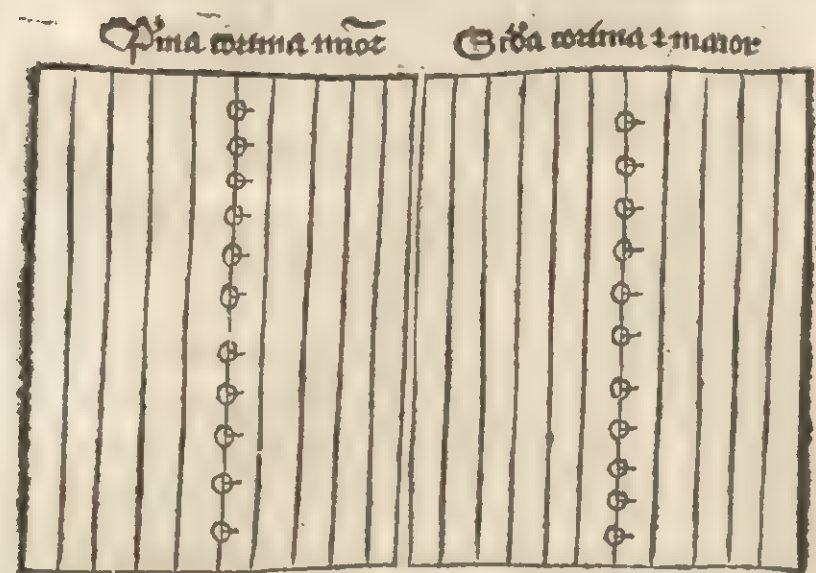 Pͥma cortina mīor Scd̓a cortina ⁊ maior